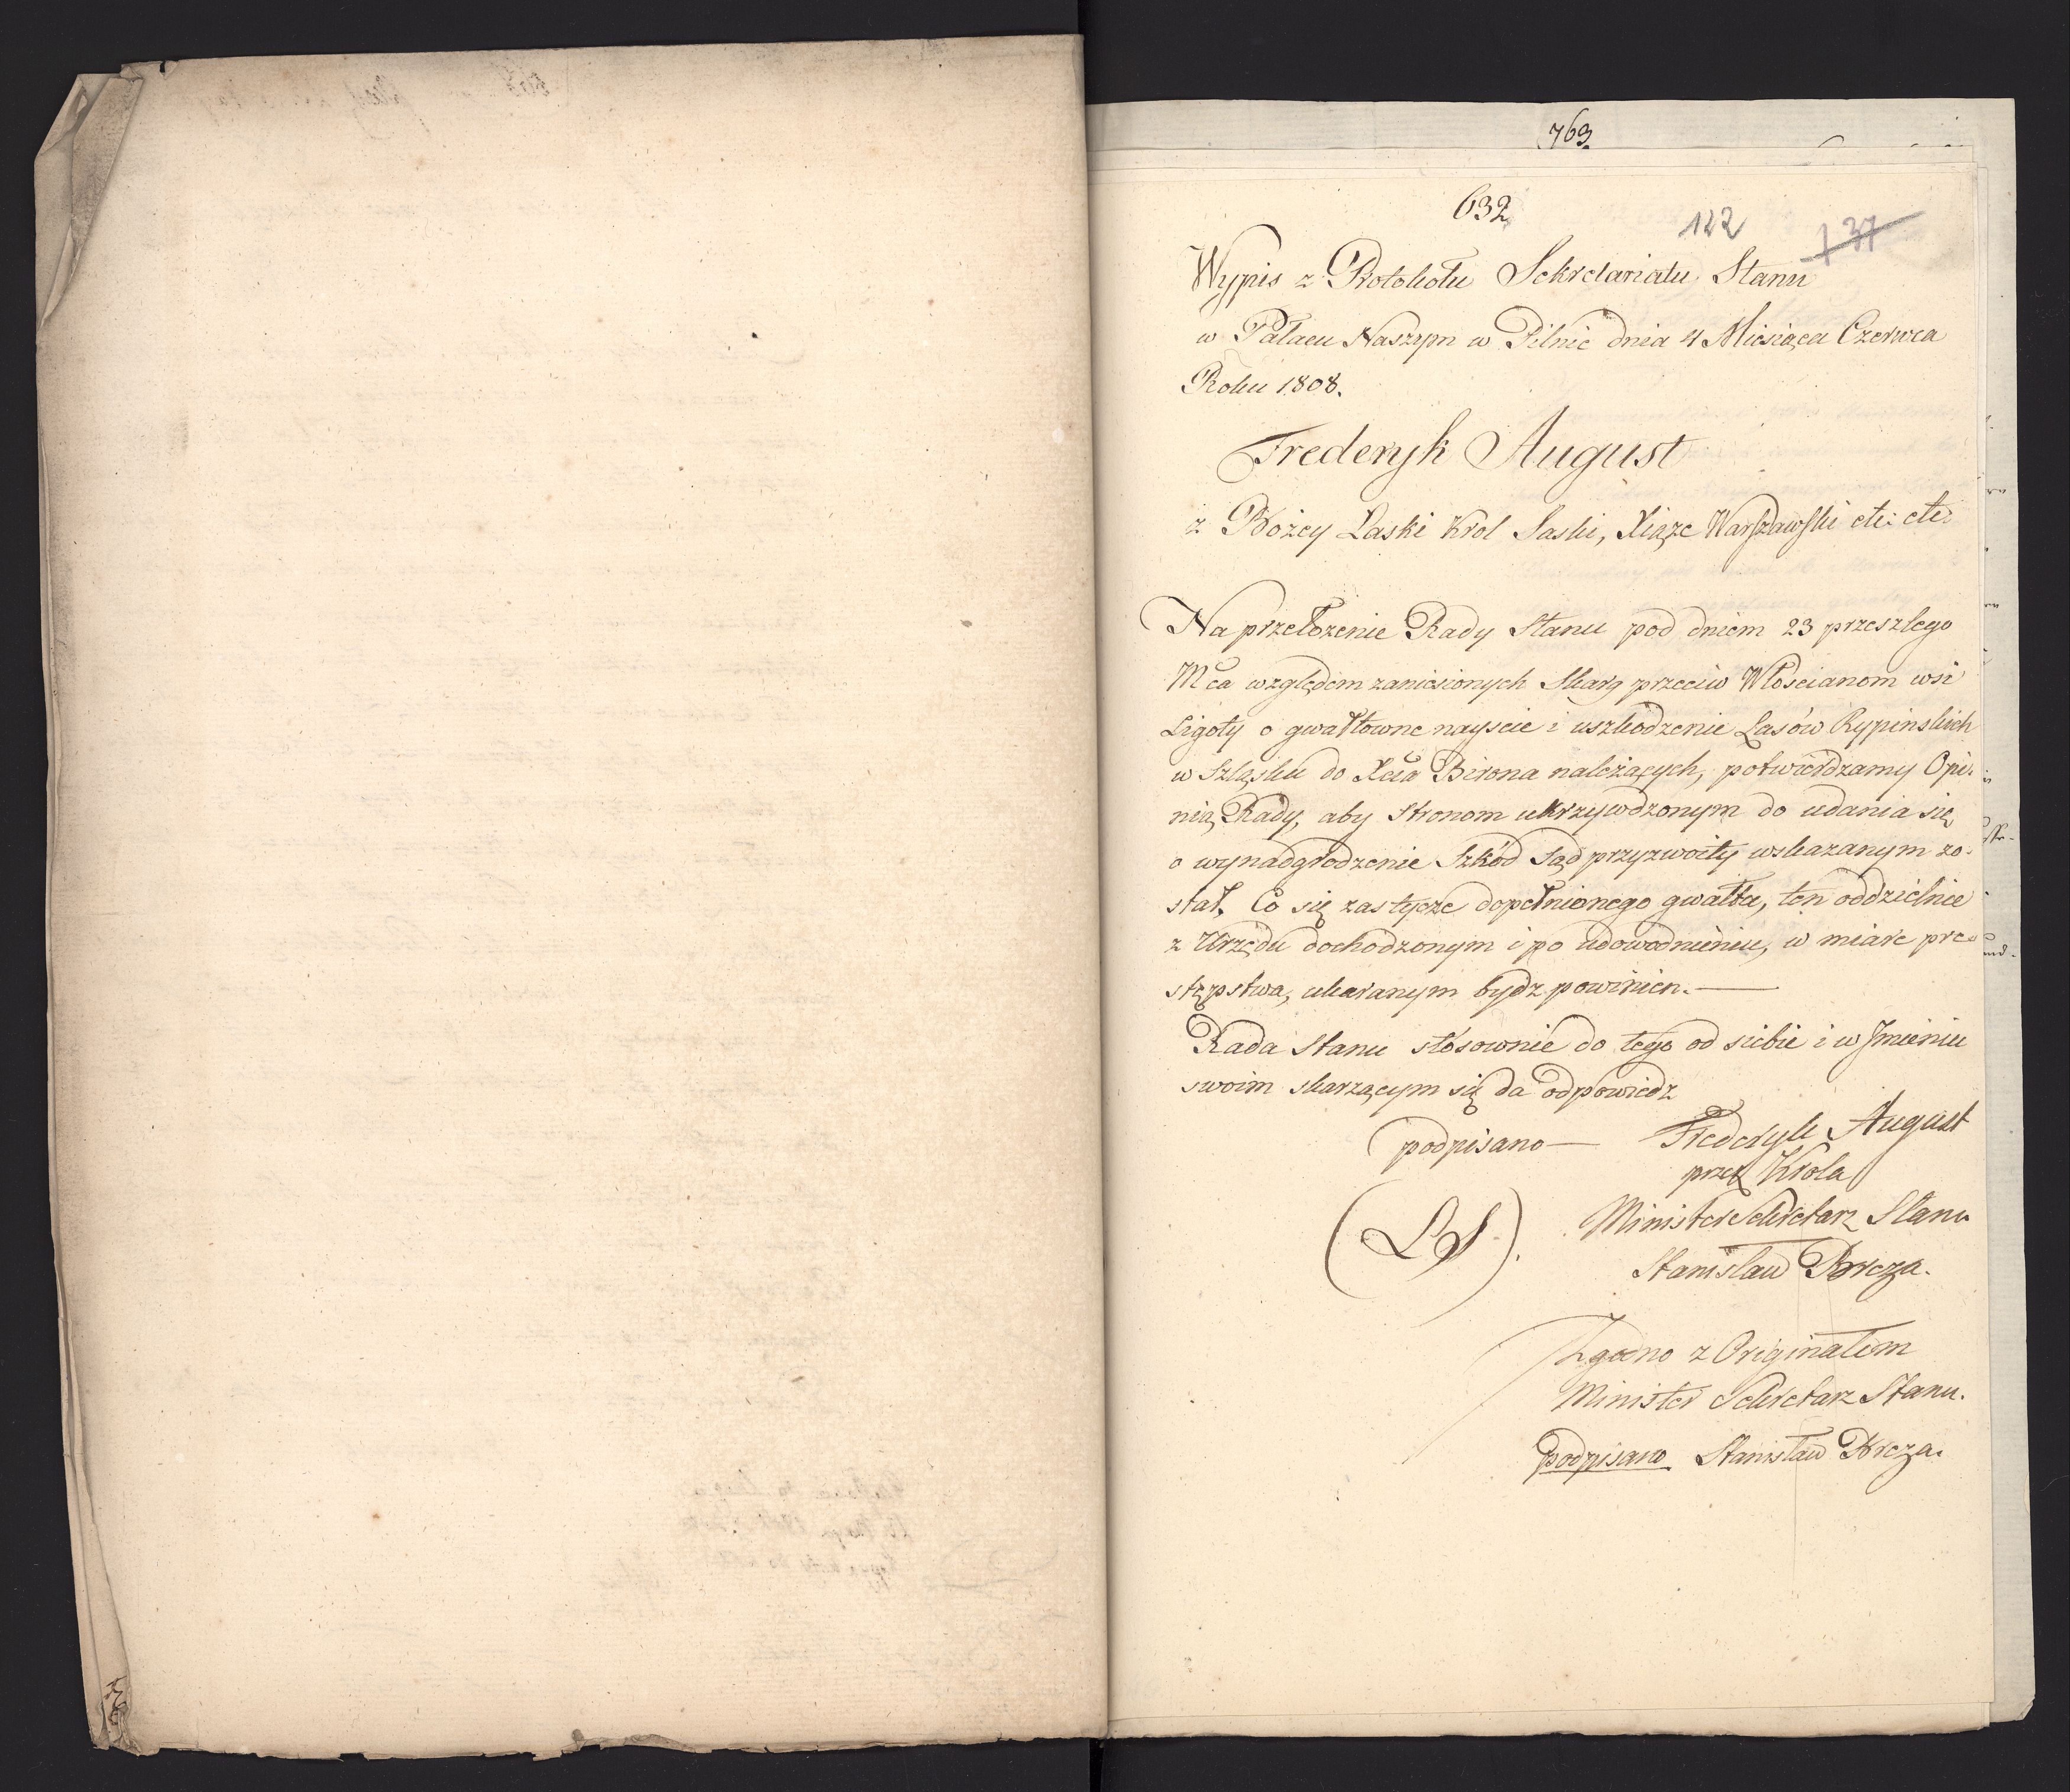 763.
632
122
137
Wypis z Protokołu Sekretariatu Stanu
w Pałacu Naszym w Pilnic dnia 4 Miesiąca Czerwca
Roku 1808.
Frederyk August
z Bożey Łaski Krol Saski, Xiąże Warszawski etc: etc:
Na przełożenie Rady Stanu pod dniem 23 przeszłego
Mca względem zaniesionych skarg przeciw Włościanom wsi
Ligoty o gwałtowne nayście i uszkodzenie Lasów Rypinskich
w Szląsku do Xcia Birona należących, potwierdzamy Opi-
nią Rady, aby Stronom ukrzywdzonym do udania się
o wynadgrodzenie Szkód Sąd przyzwoity wskazanym zo-
stał. Co się zas tycze dopełnionego gwałtu, ten oddzielnie
z Urzędu dochodzonym i po udowodnieniu, w miarę prze-
stępstwa, ukaranym bydz powinien.—
Rada Stanu stosownie do tego od siebie i w Jmieniu
swoim skarzącym się da odpowiedz
podpisano— Frederyk August
przez Krola
(LS). Minister Sekretarz Stanu
Stanisław Breza.
Zgodno z Originałem
Minister Sekretarz Stanu.
podpisano Stanisław Breza.